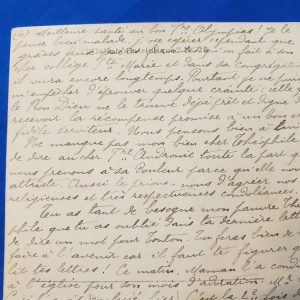 (6) Meilleure santé au bon fre Olympias. Je le
pense bien malade, j'ose espérer cependant que
grâces
cher collège Ste Marie et dans sa congrégation
il vivra encore longtemps. Pourtant je ne puis
m'empêcher d'éprouver quelque crainte: celle que
le Bon Dieu ne le trouve déjà prêt et digne de
recevoir la récompense promise à un bon et
fidèle serviteur. Nous pensons bien à lui
Ne manque pas mon bien cher Théophile
de dire au cher fre Andronic toute la part que
nous prenons à sa douleur parce qu'elle nous
attriste. Aussi le prions-nous d'agréer nos
religieuses et très respectueuses condoléances.
Tu as tant de besogne mon pauvre Théo-
phile que tu as oublié dans ta dernière lettre
de dire un mot pour Toulon. Tu feras bien de
faire à l'avenir car il faut te figurer qu
lit tes lettres! Ce matin, Maman l'a
à l'église pour son mois d'adoration.